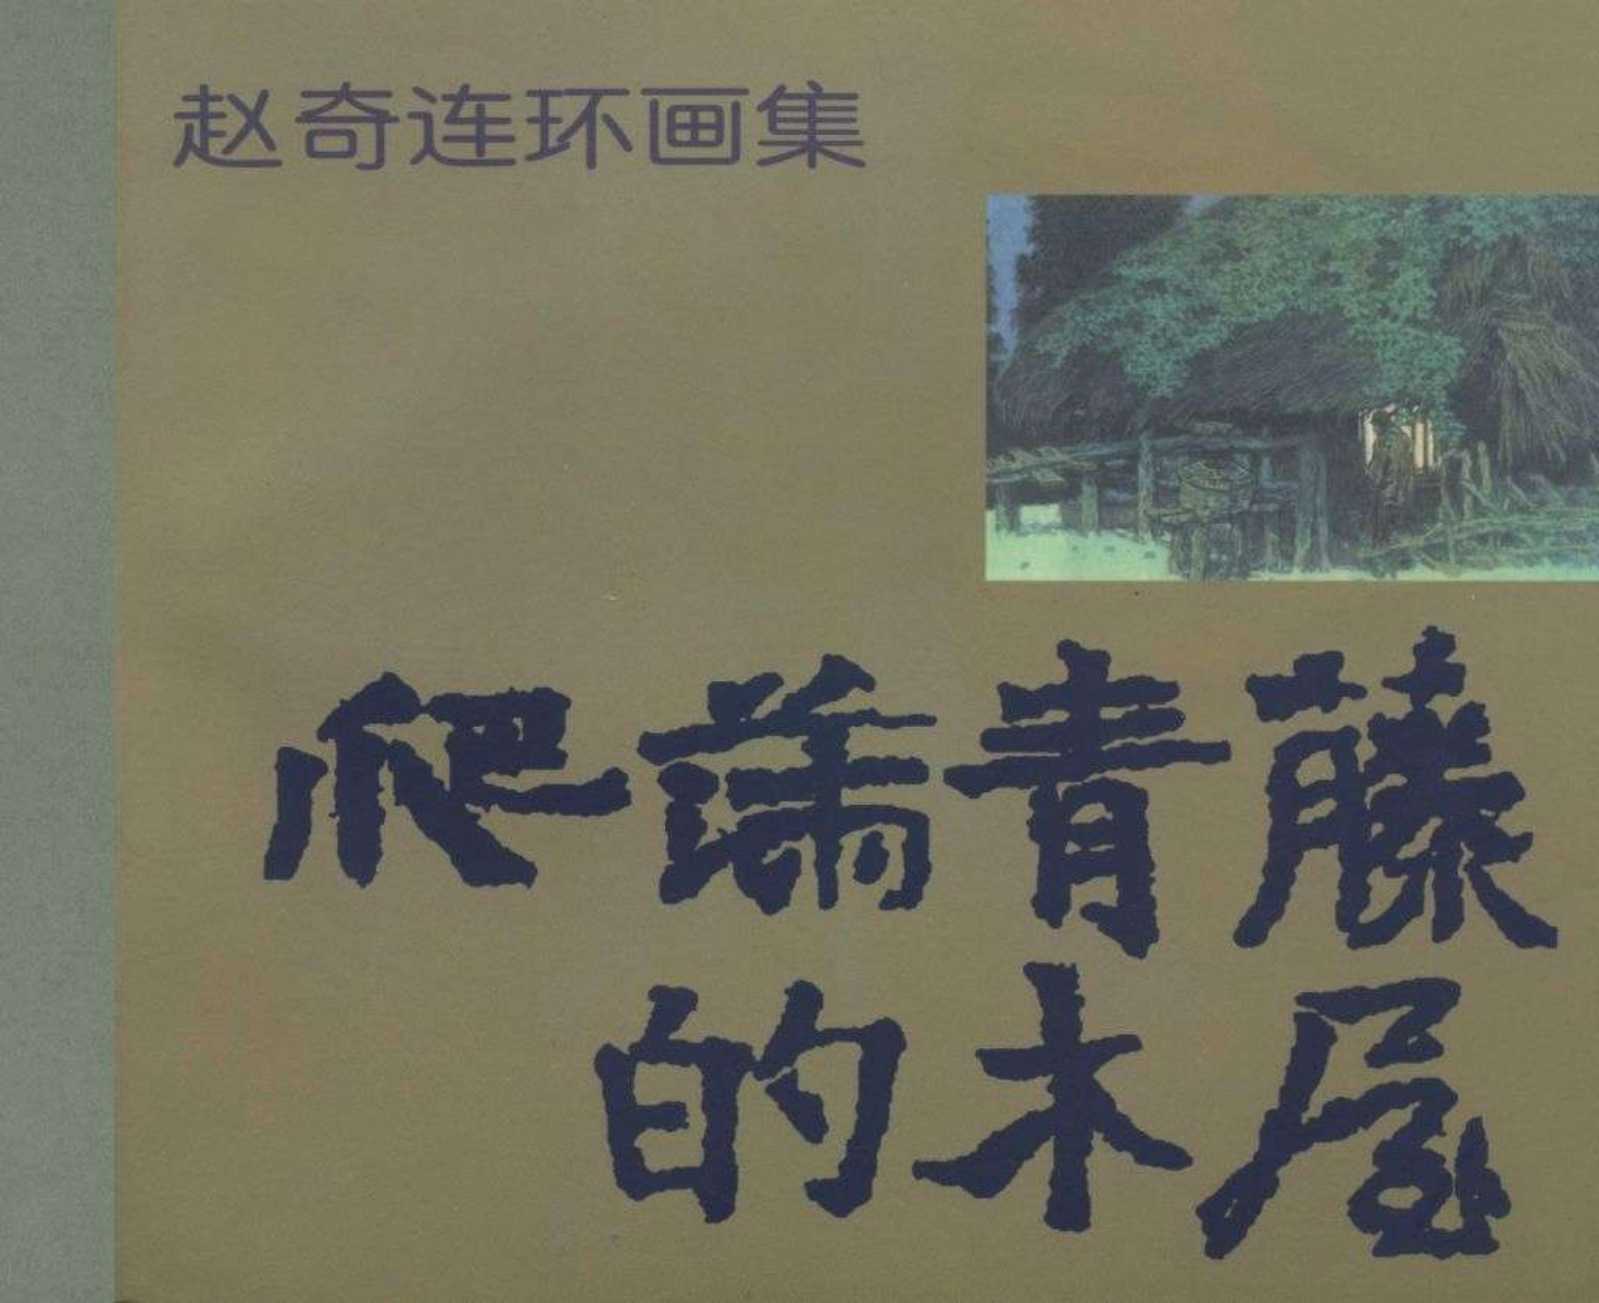 赵奇连环画集
爬满青藤
的木屋